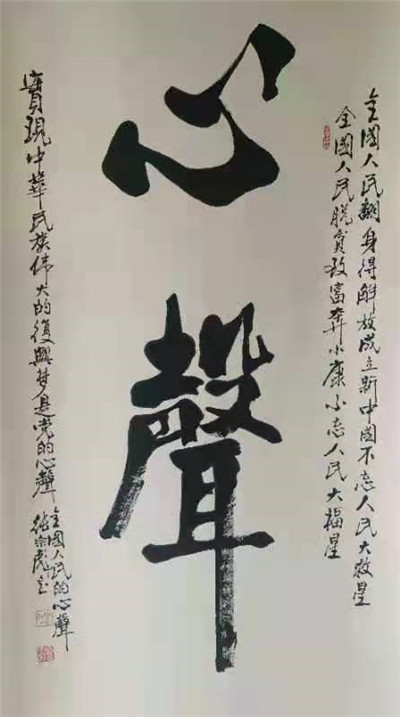 全國人民翻身得解放成立新中國不忘人民大救星
全國人民脫貧致富奔小康不忘人民大福星
心聲
實現中華民族偉大的復興梦是党的心聲
全國人民的心聲